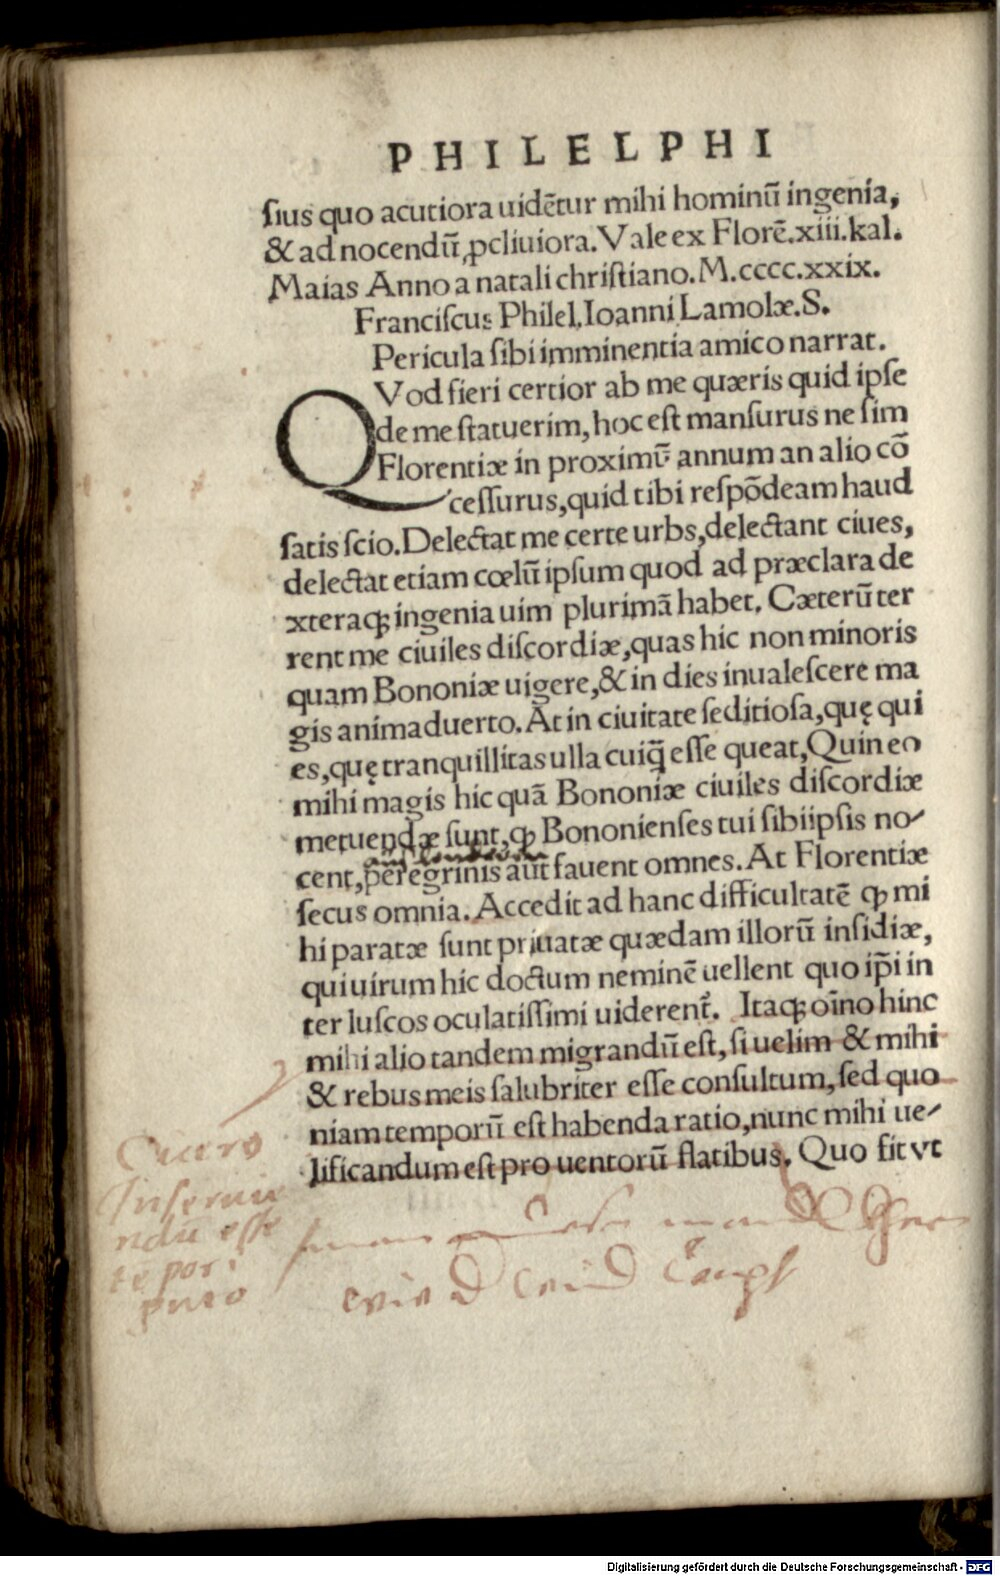 PHILELPHI
ſius quo acutiora uidẽtur mihi hominũ ingenia,
& ad nocendũ ꝓcliuiora. Vale ex Florẽ. xiii. kal.
Maias Anno a natali chriſtiano. M.cccc.xxix.
Franciſcus Philel. Ioanni Lamolæ. S.
Pericula ſibi imminentia amico narrat.
QVod fieri certior ab me quæris quid ipſe
de me ſtatuerim, hoc eſt manſurus ne ſim
Florentiæ in proximũ annum an alio cõ
ceſſurus, quid tibi reſpõdeam haud
ſatis ſcio. Delectat me certe urbs, delectant ciues,
delectat etiam cœlũ ipſum quod ad præclara de
xteraqꝫ ingenia uim plurimã habet. Cæterũ ter
rent me ciuiles diſcordiæ, quas hic non minoris
quam Bononiæ uigere, & in dies inualeſcere ma
gis animaduerto. At in ciuitate ſeditioſa, quę qui
es, quę tranquillitas ulla cuiq̃ eſſe queat, Quin eo
mihi magis hic quã Bononiæ ciuiles diſcordiæ
metuendæ ſunt, ꝙ Bononienſes tui ſibiipſis no-
cent, peregrinis aũt fauent omnes. At Florentiæ
ſecus omnia. Accedit ad hanc difficultatẽ ꝙ mi
hi paratæ ſunt priuatæ quædam illorũ inſidiæ,
qui uirum hic doctum neminẽ uellent quo ip̃i in
ter luſcos oculatiſſimi uiderent᷑. Itaqꝫ oĩno hinc
mihi alio tandem migrandũ eſt, ſi uelim & mihi
& rebus meis ſalubriter eſſe conſultum, ſed quo
niam temporũ eſt habenda ratio, nunc mihi ue-
lificandum eſt pro uentorũ flatibus. Quo fit vt
Cicero
Inſeruie
ndũ eſſe
te pori
puto
Digitalisierung gefördert durch die Deutsche Forschungsgemeinschaft - DFG